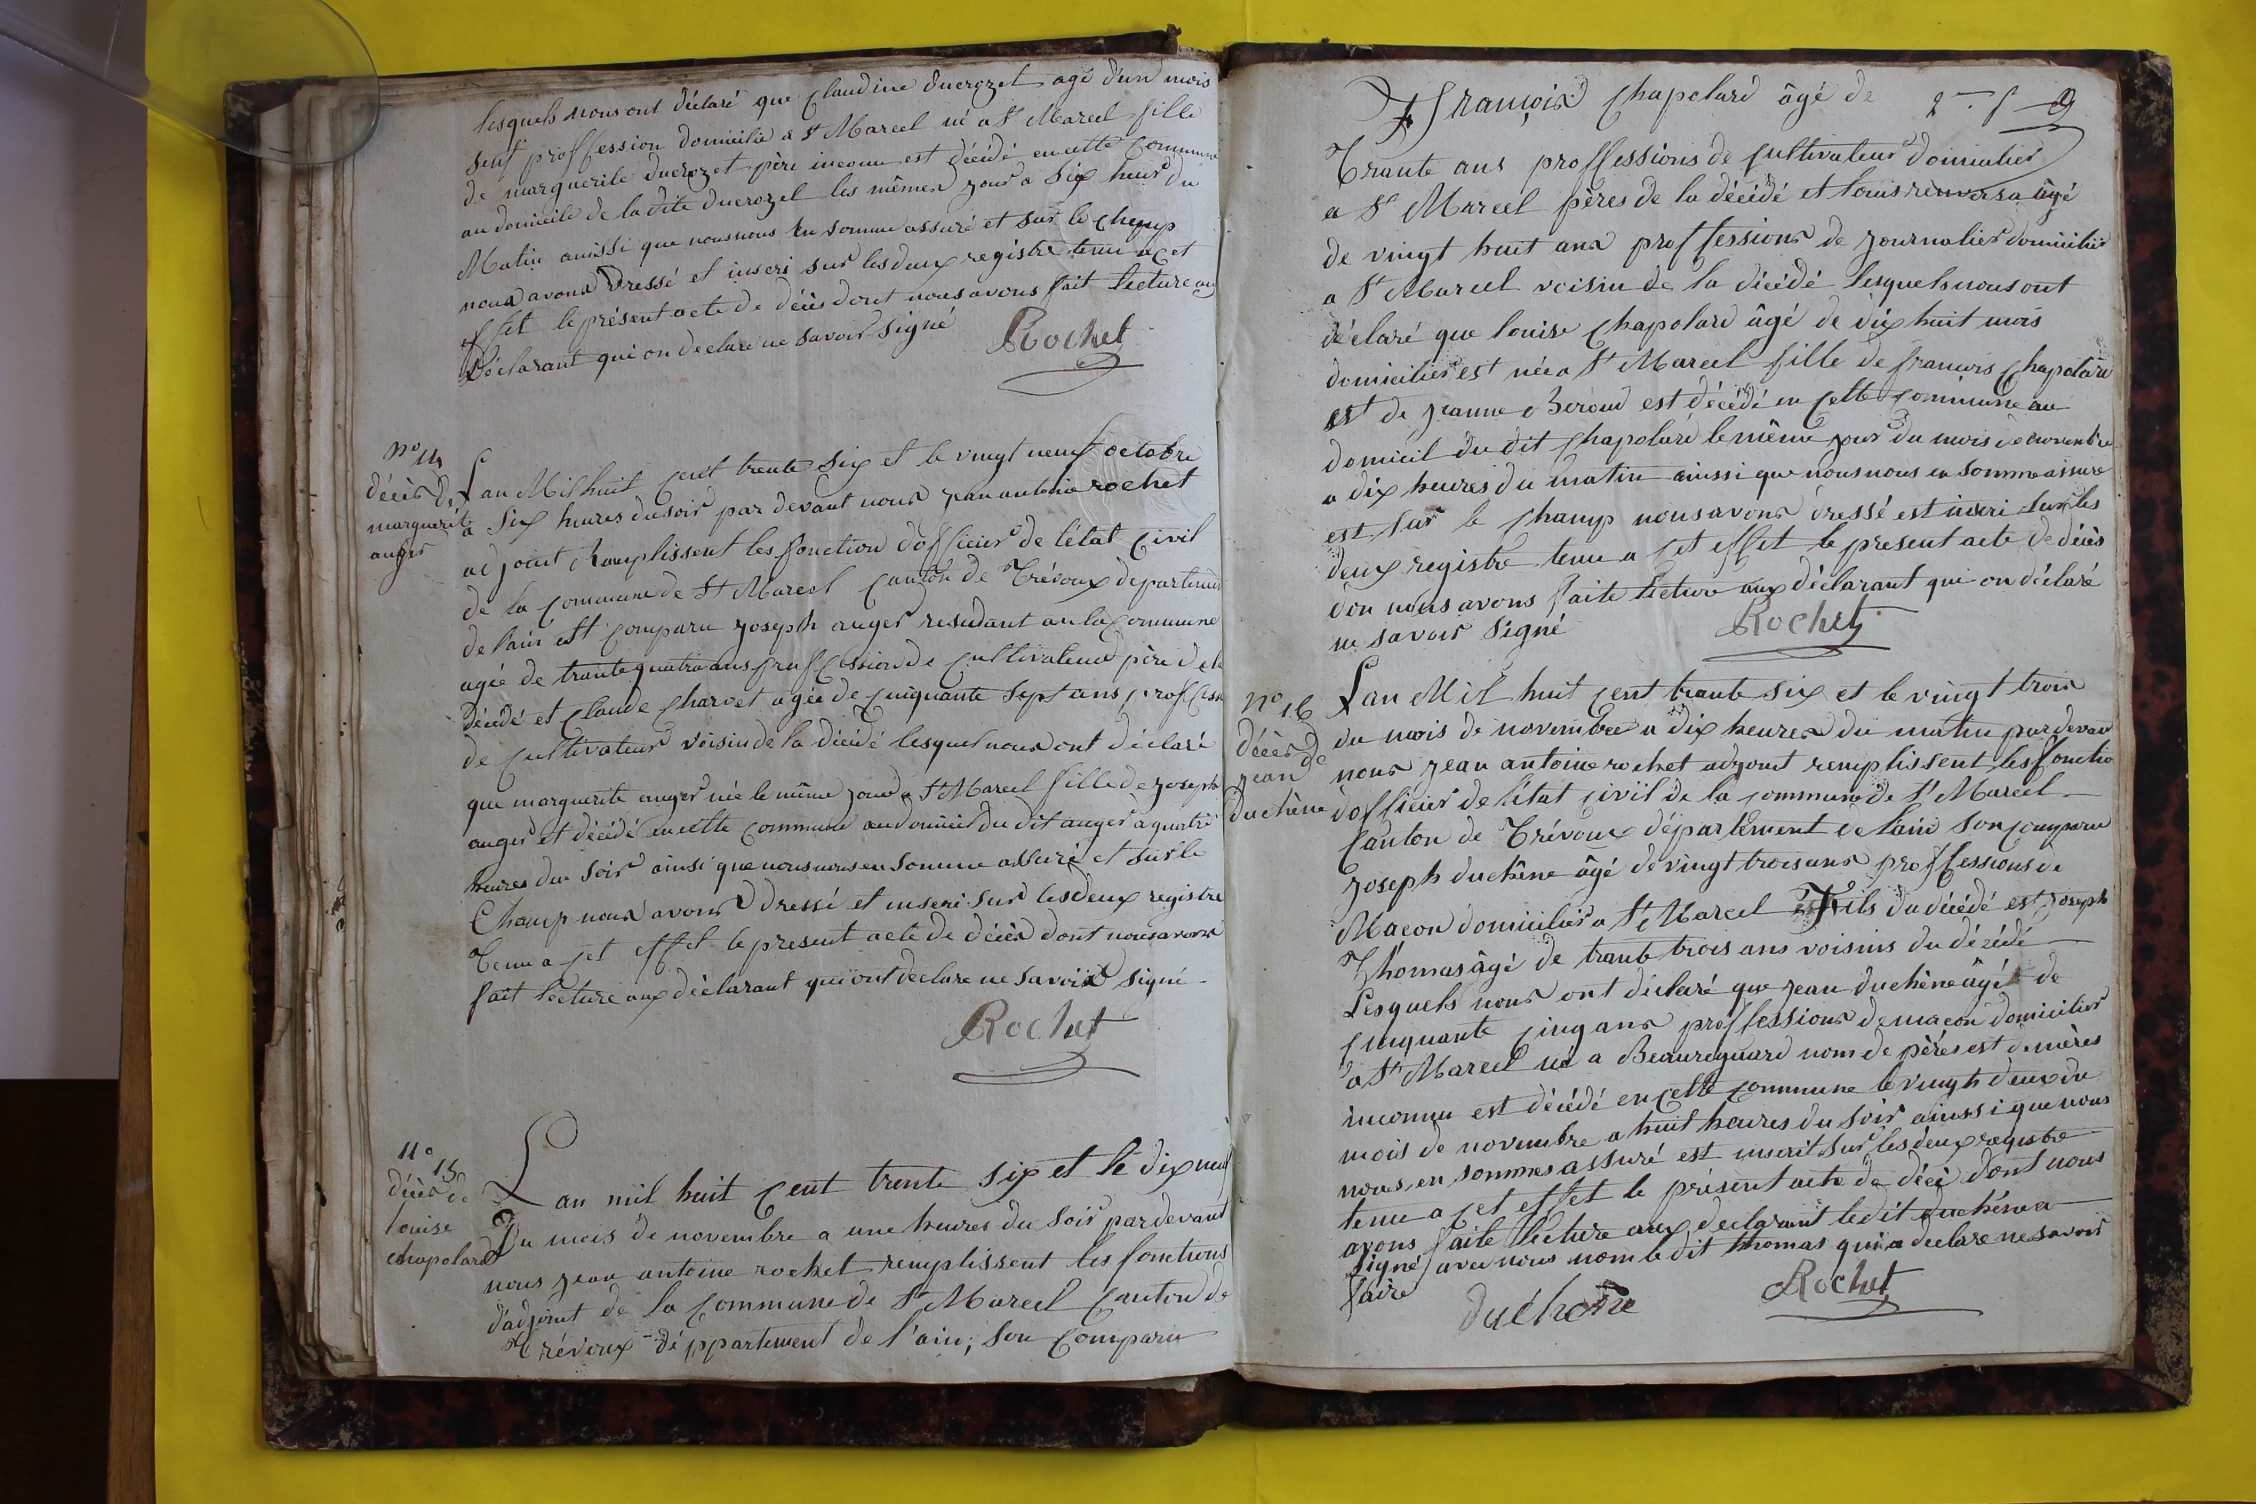 lesquels nous ont déclaré que Claudine ducrozet agé d'un mois
senf proffession domicilié a St Marcel né a St Marcel fille
de marguerite ducrozet père inconu est décédé en cette Commune
au domicile de la dite ducrozet les mêmes jour a Six heur du
Matin ainissi que nous nous en somme assuré et sur le champ
nous avons Dressé et inseri sur les deux registre tenu a cet
effet le présent acte de décès dont nous avons fait lecture au
Déclarant qui on declaré ne savoir signé
Rochet
décès de
marguerite
anger
Lan Mil huit cent trente six et le vingt neuf octobre
a Six heures du soir par devant nous jean antoine rochet
adjoint Remplissent les fonction d'officier de l'état civil
de la Commune de St Marcel Canton de Trévoux departement
de lain est comparu joseph anger residant an la Commune
agée de trante quatre ans proffession de cultivateur père de la
décédé et Claude Charvet agée de cinquante sept ans proffession
de cultivateur voisin de la décédé lesquel nous ont déclaré
que marguerite anger née le même jour a St Marcel fille de joseph
anger et décédé en cette commune au domicile du dit anger a quatre
heures du soir ainsi que nous nous en somme assuré et sur le
Champ nous avons Dressé et inseri sur les deux registre
Tenu a cet effet le present acte de décès dont nous avons
fait lecture aux déclarant qui ont declare ne savoir signé
Rochet
n° 15
décès de
louise
chapolard
Lan mil huit cent trente six et le dix neuf
Du mois de novembre a une heures du soir par devant
nous jean antoine rochet remplissent les fonctions
d'adjoint de la commune de St Marcel Canton de
Trévoux déppartement de l'ain, son comparu
françois chapolard âgé de
Trante ans proffessions de cultivateur domicilier
a St Marcel pères de la décédé et louis âgé
de vingt huit ans proffessions de journalier domicilier
a St Marcel voisin de la décédé lesquels nous ont
déclaré que louise chapolard âgé de dix huit mois
domicilier est née a St Marcel fille de francois chapolard
est de jeanne Béroud est décédé en cette commune au
domicil du dit chapolard le même jour du mois de novembre
a dix heures du matin ainissi que nous nous en somme assure
est sur le champ nous avons dressé est inseri sur les
deux registre tenu a cet effet le present acte de décès
don nous avons faite lecture aux déclarant qui on déclaré
ne savoir signé
Rochet
n° 16
décès de
jean
duchêne
Lan Mil huit cent trante six et le vingt trois
du mois de novembre a dix heures du matin par devan
nous jean antoine rochet adjoint remplissent les fonctio
d'officier de l'état civil de la commune de St Marcel
Canton de Trévoux département de lain son comparu
joseph duchêne âgé de vingt trois ans proffessions de
Macon domicilier a St Marcel Fils du décédé est joseph
Thomas âgé de trante trois ans voisins du décédé
Lesquels nous ont déclaré que jean duchêne âgé de
cinquante cinq ans proffessions de macon domicilier
a St Marcel né a Beaureguard nom de pères est de mères
inconnu est décédé en cette commune le vingt deux du
mois de novembre a huit heures du soir ainissi que nous
nous en sommes assuré est inscrit sur les deux registre
tenu a cet effet le présent acte de décè dont nous
avons faite lecture aux declarant le dit duchêne a
signé avec nous nom le dit thomas qui a declare ne savoir
faire
duchene
Rochet